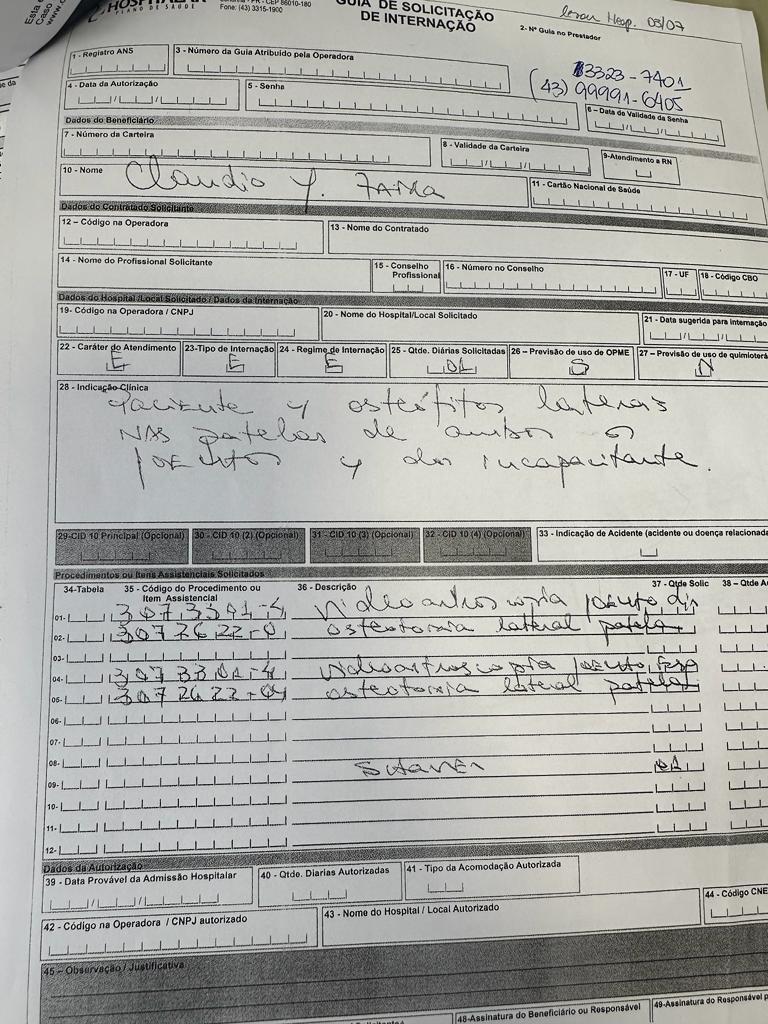 HOSPITALAR
PLANO DE SAÚDE
PR - CEP 86010-180
Fone: (43) 3315-1900
GUIA DE SOLICITAÇÃO
DE INTERNAÇÃO
2- Nº Guia no Prestador
Hosp. 03/07
3323-7401
(43) 99991-6405
1 - Registro ANS
3 - Número da Guia Atribuído pela Operadora
4 - Data da Autorização
5 - Senha
6 – Data da Validade da Senha
Dados do Beneficiário
7 - Número da Carteira
8 - Validade da Carteira
9-Atendimento a RN
10 - Nome
Claudio Y.
11 - Cartão Nacional de Saúde
Dados do Contratado Solicitante
12 – Código na Operadora
13 - Nome do Contratado
14 - Nome do Profissional Solicitante
15 - Conselho Profissional
16 - Número no Conselho
17 - UF
18 - Código CBO
Dados do Hospital /Local Solicitado / Dados da Internação
19- Código na Operadora / CNPJ
20 - Nome do Hospital/Local Solicitado
21 - Data sugerida para internação
22 - Caráter do Atendimento
E
23-Tipo de Internação
E
24 - Regime de Internação
E
25 - Qtde. Diárias Solicitadas
01
26 – Previsão de uso de OPME
S
27 – Previsão de uso de quimioterá
N
28 - Indicação Clínica
paciente osteófitos laterais
nas patelas de ambos os
joelhos y dor incapacitante.
29-CID 10 Principal (Opcional)
30 - CID 10 (2) (Opcional)
31 - CID 10 (3) (Opcional)
32 - CID 10 (4) (Opcional)
33 - Indicação de Acidente (acidente ou doença relacionada
Procedimentos ou Itens Assistenciais Solicitados
34-Tabela
35 - Código do Procedimento ou Item Assistencial
36 - Descrição
37 - Qtde Solic
38 – Qtde Au
01- Videoartroscopia joelho dir
02- osteotomia lateral patela
03-
04- Videoartroscopia joelho esq
05- osteotomia lateral patela
06-
07-
08-
09-
10-
11-
12-
Dados da Autorização
39 - Data Provável da Admissão Hospitalar
40 - Qtde. Diarias Autorizadas
41 - Tipo da Acomodação Autorizada
42 - Código na Operadora / CNPJ autorizado
43 - Nome do Hospital / Local Autorizado
44 - Código CNE
45 – Observação / Justificativa
48-Assinatura do Beneficiário ou Responsável
49-Assinatura do Responsável p